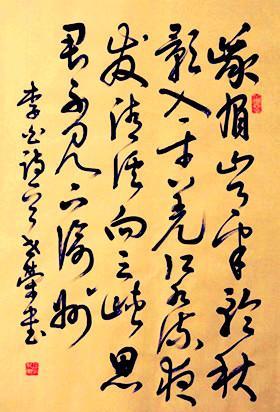 峨眉山月半轮秋
影入平羌江水流夜
发清溪向三峡思
君不见下渝州
李白诗一首 荣書